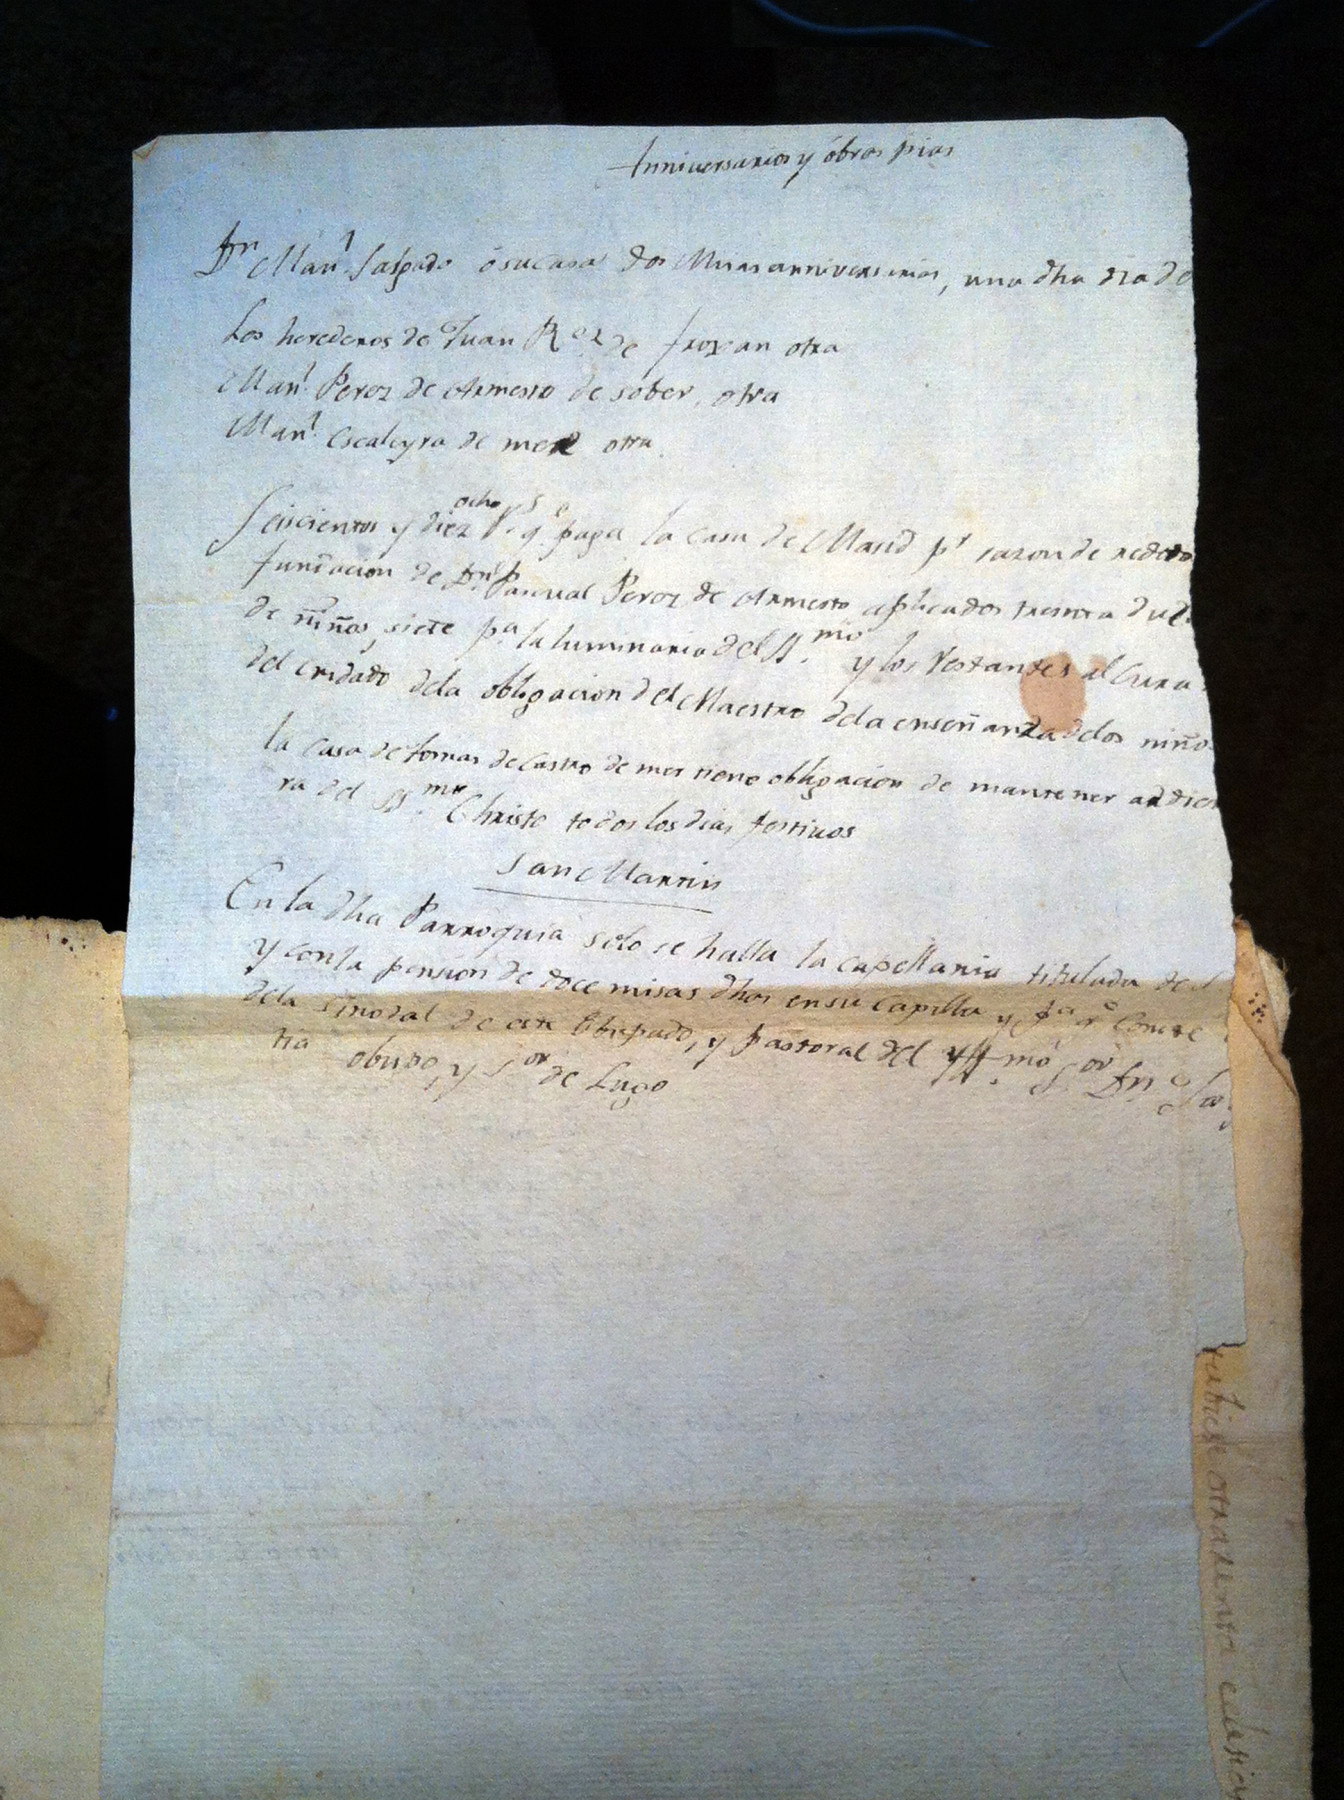 Anniversarios y obras pias
Dn Manl Salgado ó su casa dos Misas anniversarias, una dha dia de
Los herederos de Juan Rez de froyan otra
Manl Perez de Armesto de sober, otra
Manl escaleyra de mer otra
Seiscientos y diez ocho Rs qe paga la casa de Masid pr razon de redito
fundacion de Dn Pascual Perez de Armesto aplicados treinta duc.
de niños, siete pa la luminaria del SSmo y los restantes al Cura
del cuidado dela obligacion del Maestro dela enseñanza delos niños
la casa de tomas de castro de mer tiene obligacion de mantener ardien
ra del SSmo Christo todos los dias festivos
San Martin
En la dha Parroquia solo se halla la capellania titulada de
y con la pension de doce misas dhas en su Capilla y pa qe conste
dela sinodal de este Obispado, y pastoral del Yllmo Sor Dn
obispo, y Sor de Lugo
tubiese otra renta eclesia